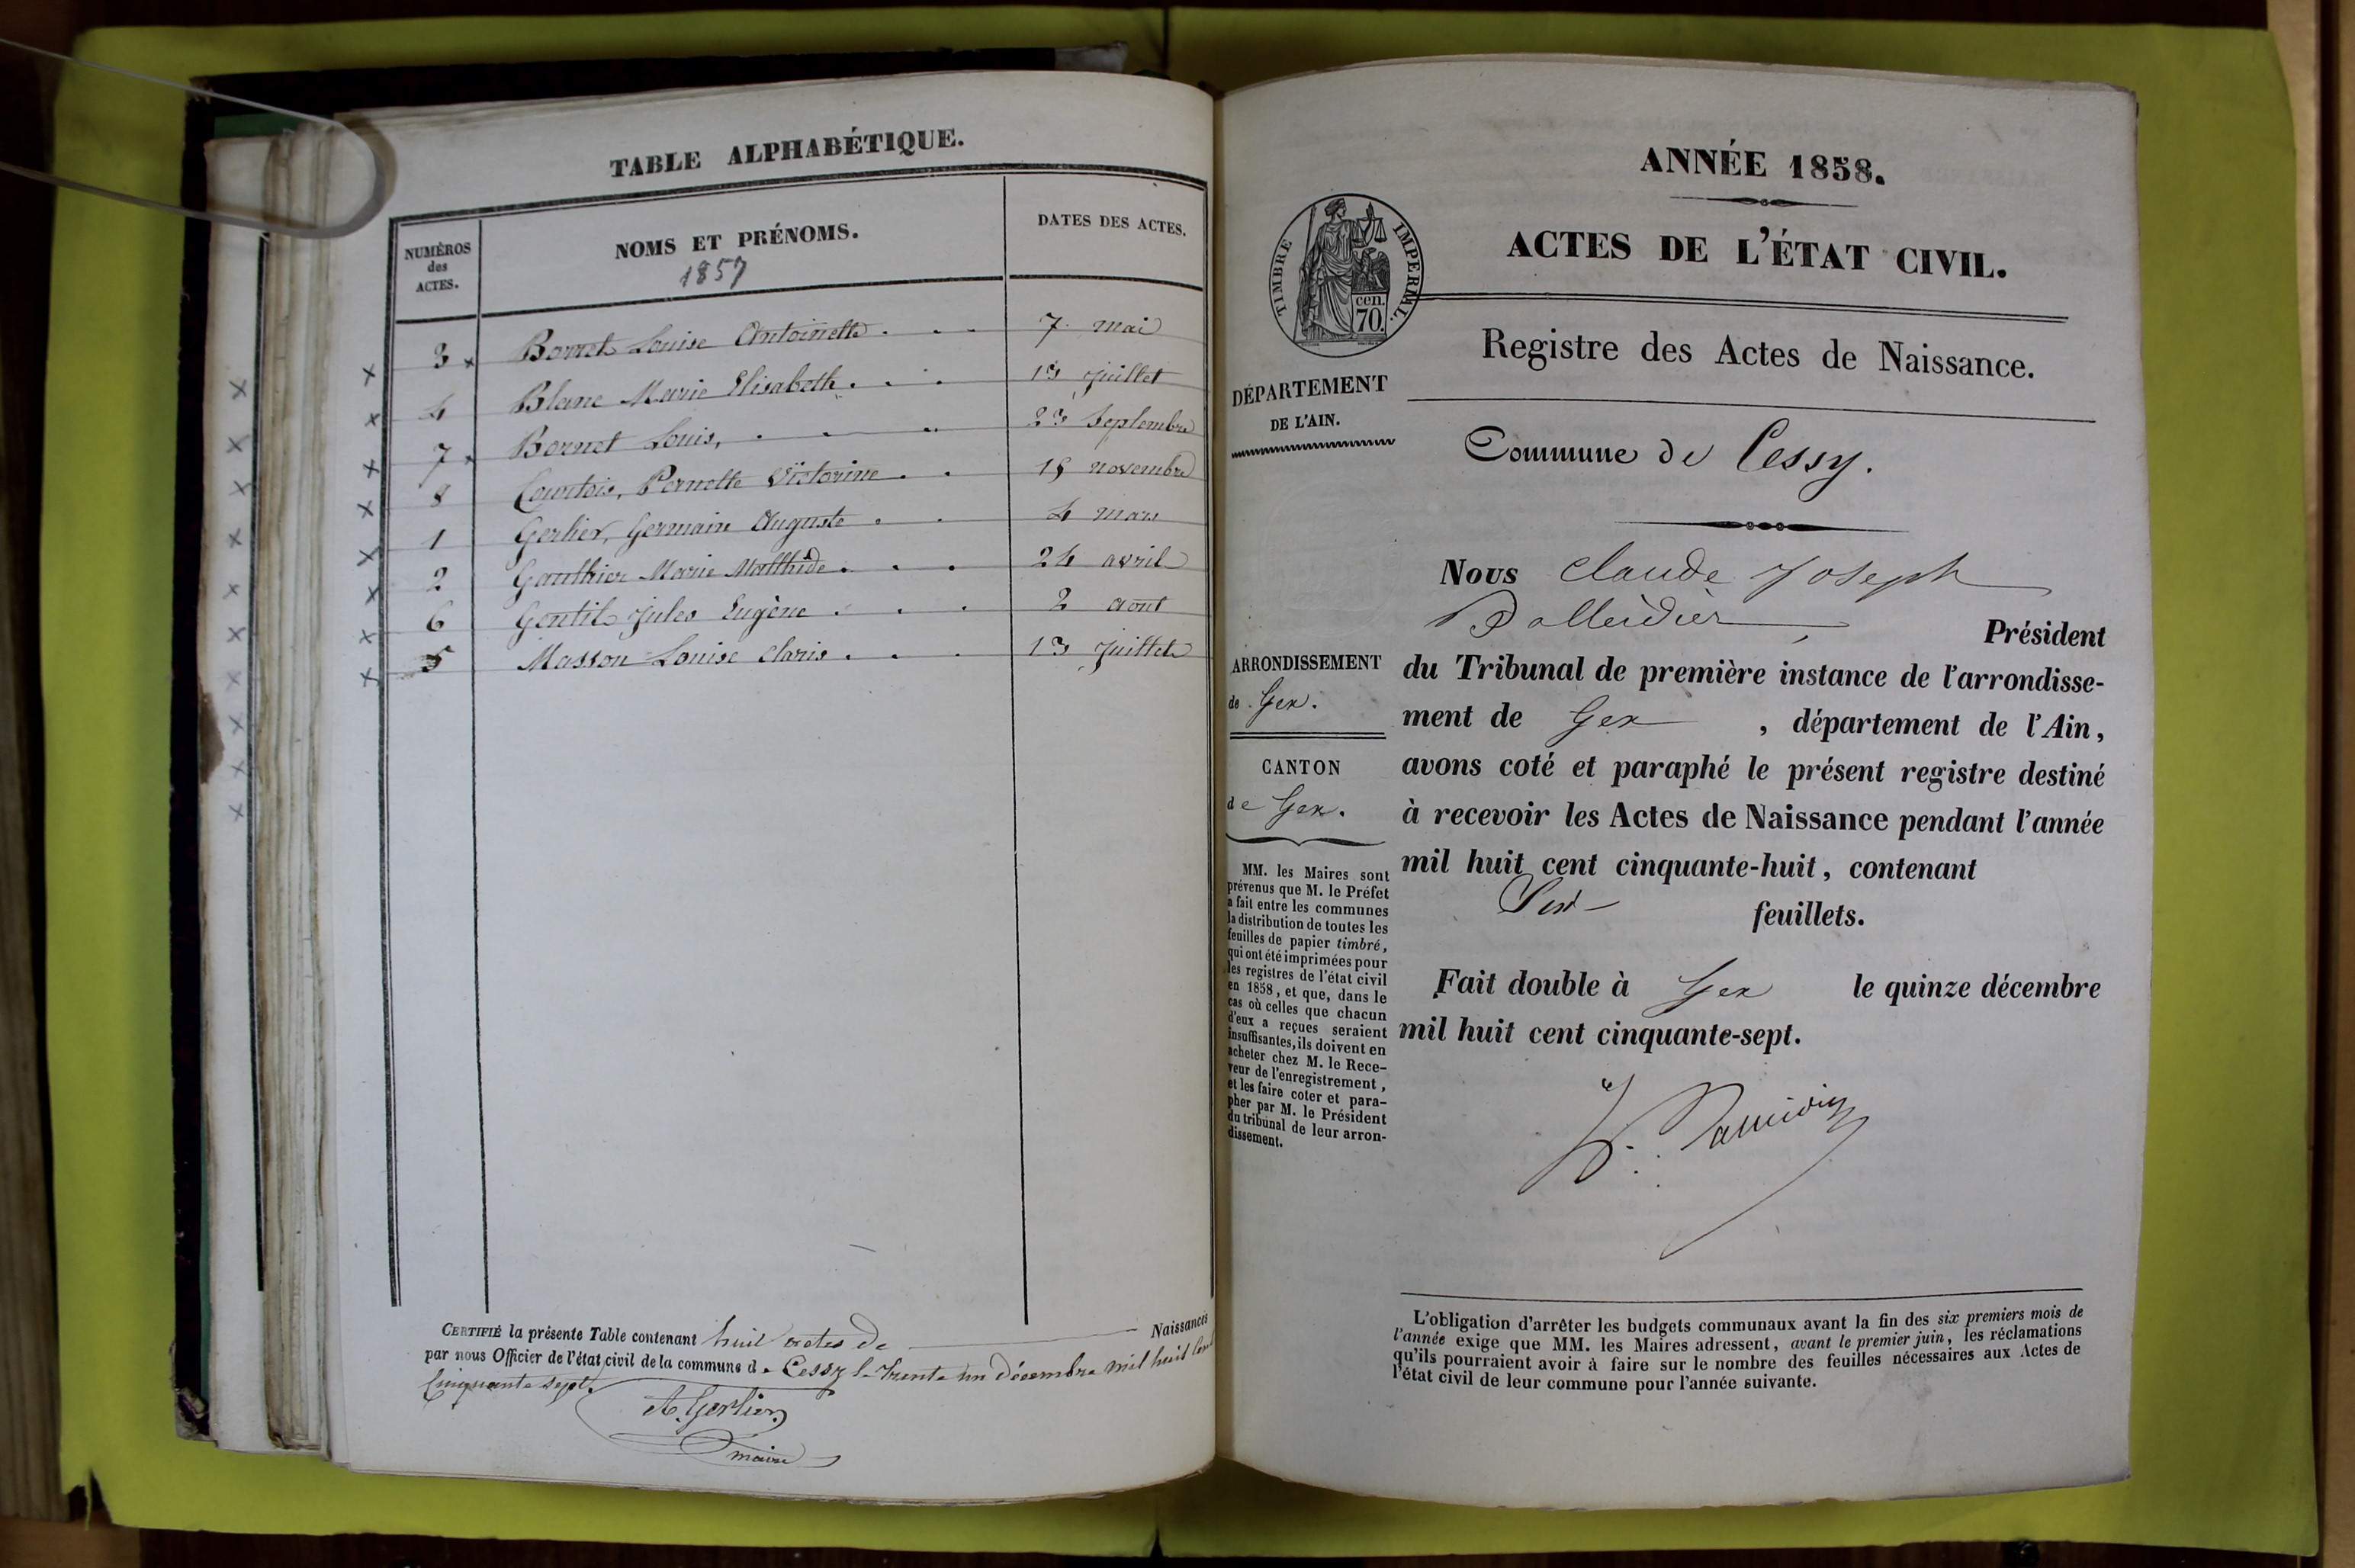 TABLE ALPHABÉTIQUE.
NUMÉROS
des
ACTES.
NOMS ET PRÉNOMS.
1857
DATES DES ACTES.
3 Bornet Louise Antoinette 7. mai
4 Blanc Marie Elisabeth 13 juillet
7 Bornet Louis, 23 Septembre
8 Courtois, Pernette Victorine 15 novembre
1 Gerlier, Germain Auguste 4 mars
2 Gauthier Marie Mathilde 24 avril
6 Gentil Jules Eugène 2 aout
5 Masson Louise Claris 13 juillet
CERTIFIÉ la présente Table contenant huit actes de Naissances
par nous Officier de l'état civil de la commune de Cessy le trente un décembre mil huit cent
Cinquante sept.
A. Gerlier
maire
ANNÉE 1858.
ACTES DE L'ÉTAT CIVIL.
TIMBRE IMPERIAL.
cen.
70.
Registre des Actes de Naissance.
DÉPARTEMENT
DE L'AIN.
Commune de Cessy.
Nous Claude Joseph
Président
du Tribunal de première instance de l'arrondisse-
ment de Gex , département de l'Ain,
avons coté et paraphé le présent registre destiné
à recevoir les Actes de Naissance pendant l'année
mil huit cent cinquante-huit, contenant
feuillets.
Fait double à Gex le quinze décembre
mil huit cent cinquante-sept.
ARRONDISSEMENT
de Gex.
CANTON
de Gex.
MM. les Maires sont
prévenus que M. le Préfet
a fait entre les communes
la distribution de toutes les
feuilles de papier timbré,
qui ont été imprimées pour
les registres de l'état civil
en 1858, et que, dans le
cas où celles que chacun
d'eux a reçues seraient
insuffisantes, ils doivent en
acheter chez M. le Rece-
veur de l'enregistrement,
et les faire coter et para-
pher par M. le Président
du tribunal de leur arron-
dissement.
L'obligation d'arrêter les budgets communaux avant la fin des six premiers mois de
l'année exige que MM. les Maires adressent, avant le premier juin, les réclamations
qu'ils pourraient avoir à faire sur le nombre des feuilles nécessaires aux Actes de
l'état civil de leur commune pour l'année suivante.